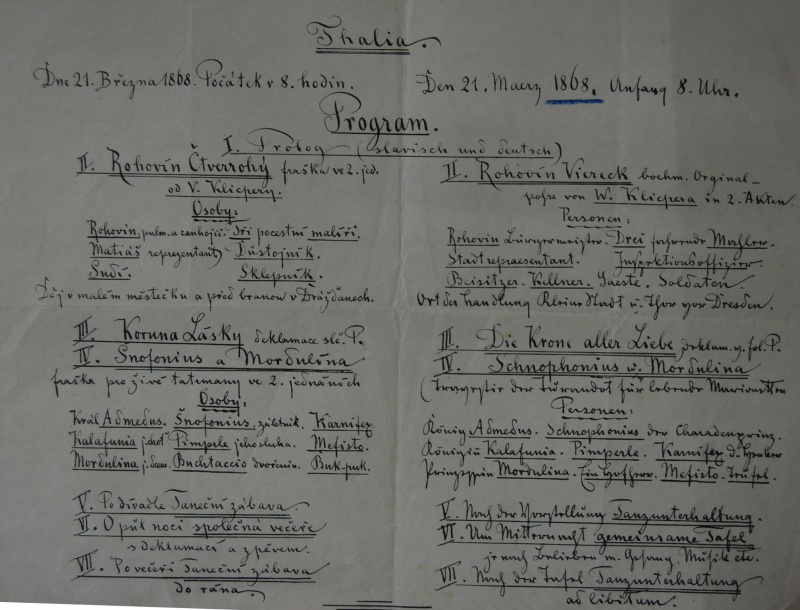 Thalia.
Dne 21. Března 1868. Počátek v 8. hodin.
Den 21. Maerz 1868. Anfang 8. Uhr.
Program.
I. Prolog (slavisch und deutsch)
II. Rohovín Čtverrohý fraška ve 2. jed.
od V. Klicpery.
Osoby:
Rohovín, pulm. a Tři pocestní malíři.
Matiáš reprezentant, Důstojník.
Sudí. Sklepník.
Děj v malém městečku a před branou v Drážďanech.
III. Koruna Lásky deklamace slč. P.
IV. Šnofonius a Mordulína
fraška pro živé tatrmany ve 2. jednáních
Osoby:
Král Admedus. Šnofonius, záletník. Karnifex
Kalafunia j. choť Pimperle jeho sluha. Mefisto.
Mordulina j. dcera. Buchtaccio dvořenín. Buk-puk.
V. Po divadle Taneční zábava
VI. O půl noci společná večeře
s deklamací a zpěvem.
VII. Po večeři Taneční zábava
do rána.
II. Rohovín Viereck boehm. Orginal-
posse von W. Klicpera in 2. Akten.
Personen:
Rohovin Bürgermeister. Drei fahrende Mahler.
Stadtrepraesentant. Inspektionsoffizier.
Beisitzer. Kellner. Gaeste. Soldaten.
Ort der Handlung Kleine Stadt u. Thor vor Dresden.
III. Die Krone aller Liebe, deklam. v. föl. P.
IV. Schnophonius u. Mordulina
(Travestie der Turandot für lebende Marionetten
Personen:
König Admedus. Schnophonius der Charadenprinz.
Königin Kalafunia. Pimperle. Karnifex d. Henker
Prinzessin Mordulina. Ein Hofherr. Mefisto. Teufel.
V. Nach der Vorstellung Tanzunterhaltung.
VI. Um Mitternacht gemeinsame Tafel
je nach Belieben m. Gesang, Musik etc.
VII. Nach der Tafel Tanzunterhaltung
ad libitum.